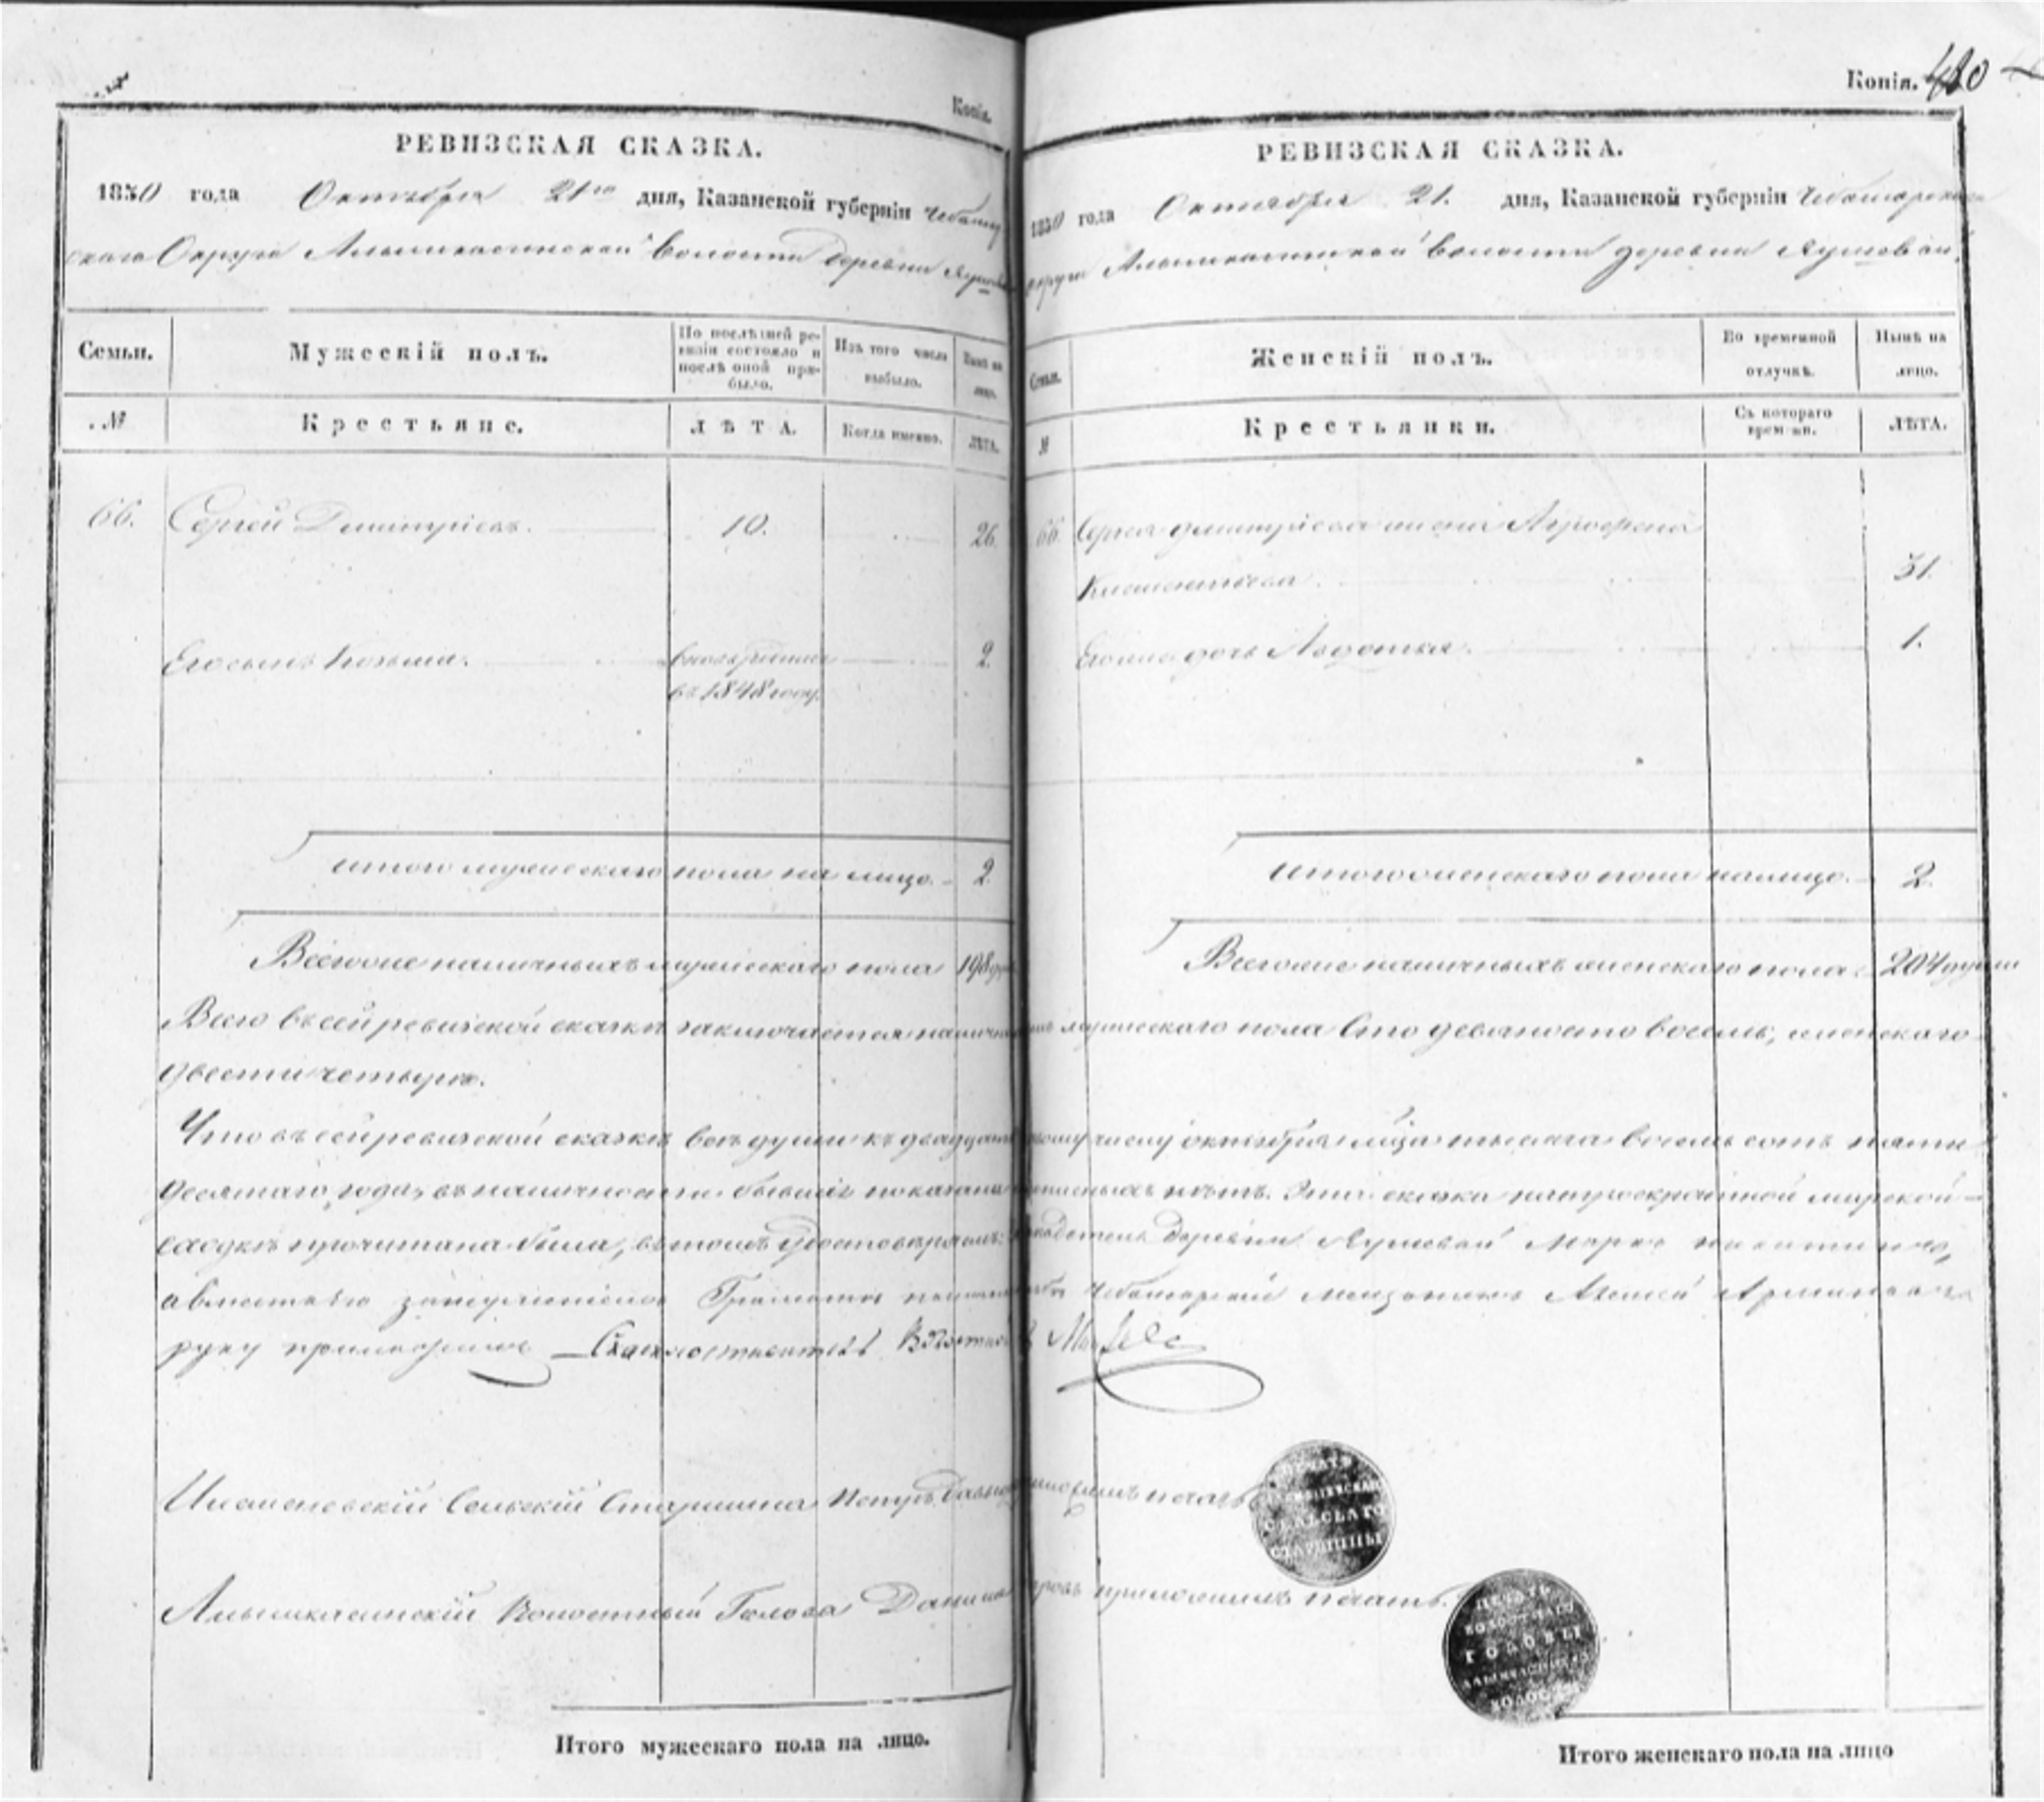 Копія.
РЕВИЗСКАЯ СКАЗКА.
1850 года Октября 21го дня, Казанской губерніи Чебоксар
скаго Округа Алымкасинской волости деревни Яушевой
Семьи. Мужескій полъ. По послѣдней ревизіи состояло и послѣ оной прибыло. Изъ того числа выбыло. Нынѣ на лицо.
№ Крестьяне. ЛѢТА. Когда именно. ЛѢТА.
66. Сергей Дмитріевъ. 10. 26.
Его сынъ Козьма. вновь рожден 2.
въ 1848 году.
итого мужескаго пола на лицо. 2
Всего же наличныхъ мужескаго пола 198
Копія. 480
РЕВИЗСКАЯ СКАЗКА.
1850 года Октября 21. дня, Казанской губерніи Чебоксарскаго
округа Алымкасинской волости деревни Яушевой.
Семьи. Женскій полъ. Во временной отлучкѣ. Нынѣ на лицо.
№ Крестьянки. Съ котораго времени. ЛѢТА.
66. Сергея Дмитріева жена Агрофена
Климентьева. 31.
Его же дочь Авдотья. 1.
итого женскаго пола на лицо. 2.
Всего же наличныхъ женскаго пола 204 души
Всего въ сей ревизской сказкѣ заключается наличныхъ мужескаго пола Сто девяносто восемь, женскаго
двести четыре.
Что въ сей ревизской сказкѣ всѣ души къ двадцать первому числу октября мѣца тысяча восемь сотъ пяти
десятаго года, въ наличности бывшіе показаны и нѣтъ. Эта сказка мирской
сходкѣ прочитана была, въ томъ удостовѣряемъ: деревни Яушевой Марко
а вместо его Грамоты Чебоксарскій
руку приложилъ
Сельскій Старшина Петръ приложилъ печать
Алымкасинскій Волостный Голова Данила приложилъ печать.
СЕЛЬСКАГО
СТАРШИНЫ
ВОЛОСТНАГО
ГОЛОВЫ
АЛЫМКАСИНСКОЙ
ВОЛОСТИ
Итого мужескаго пола на лицо.
Итого женскаго пола на лицо